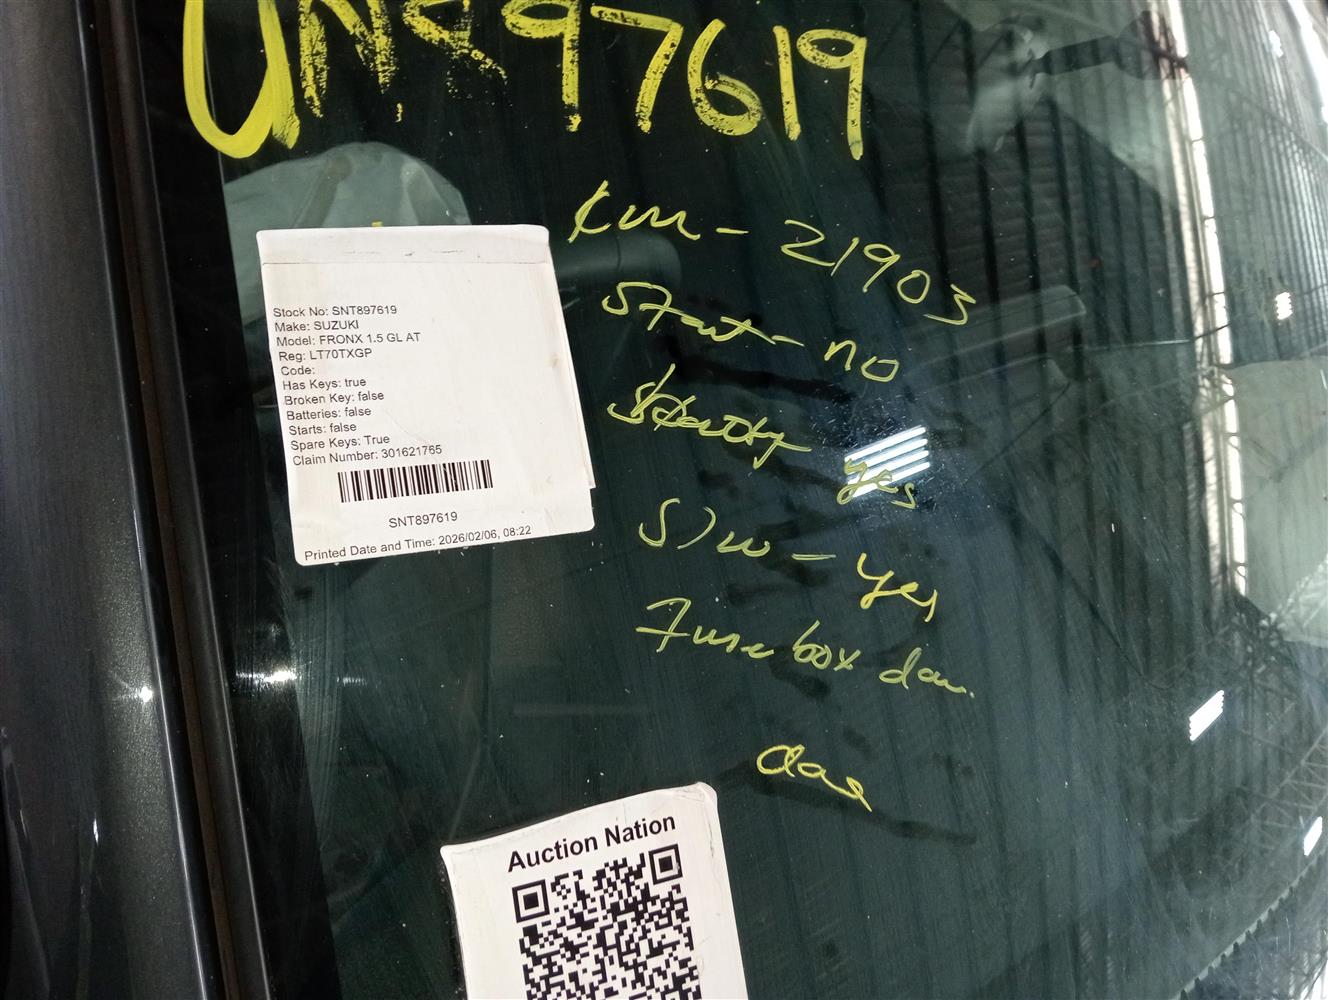 897619
Km - 21903
Start - no
yes
S/W - yes
Fuse box dam.
Stock No: SNT897619
Make: SUZUKI
Model: FRONX 1.5 GL AT
Reg: LT70TXGP
Code:
Has Keys: true
Broken Key: false
Batteries: false
Starts: false
Spare Keys: True
Claim Number: 301621765
SNT897619
Printed Date and Time: 2026/02/06, 08:22
Auction Nation